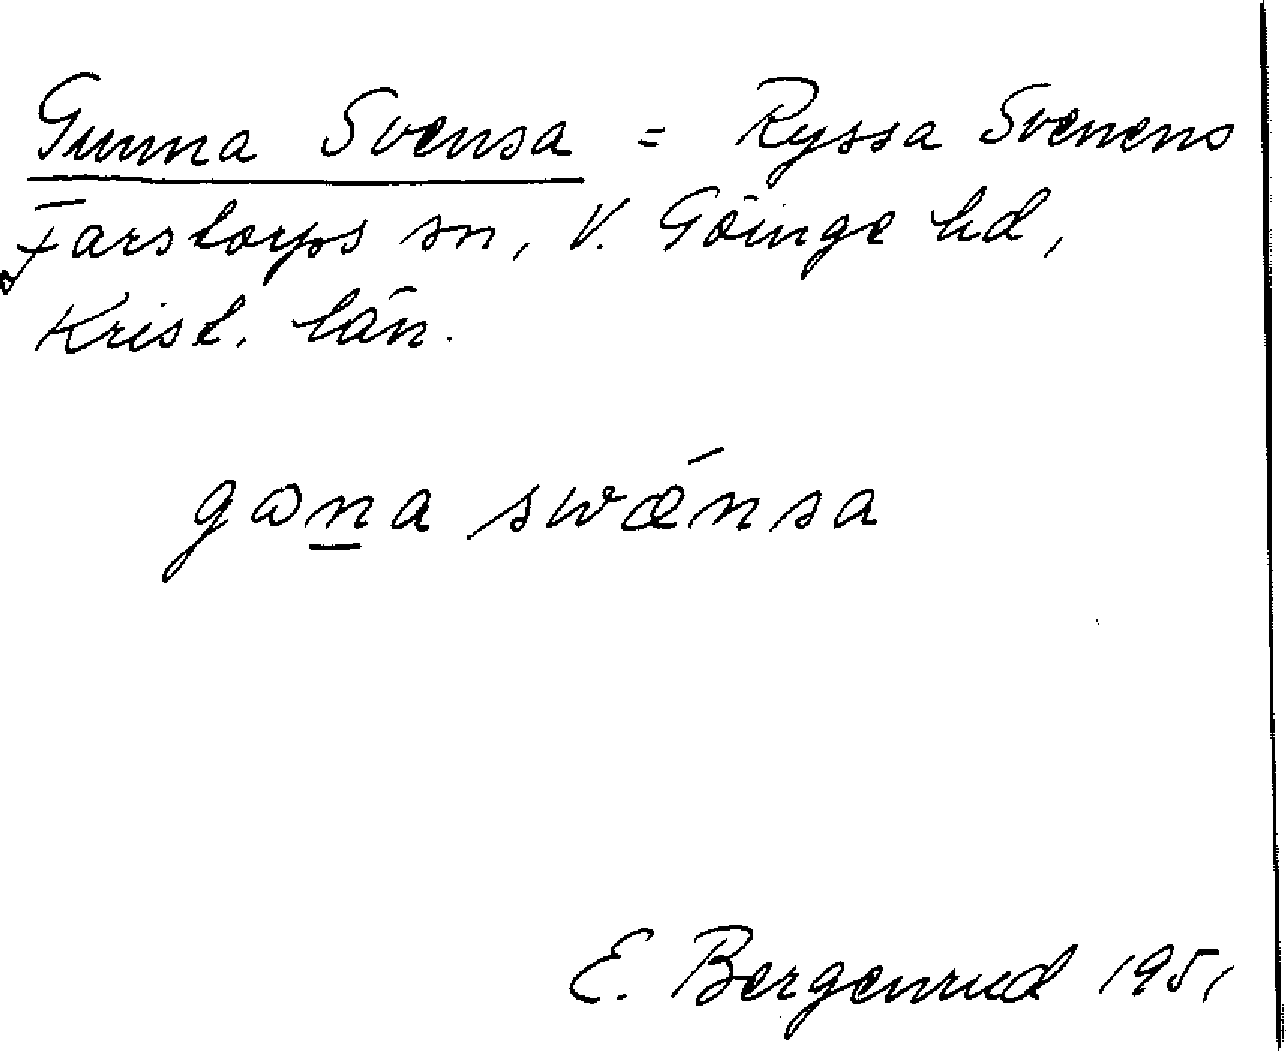 Gunna Svensa = Ryssa Svenens
Farstorps sn, V. Göinge hd,
Krist. län.
gωna swǽnsa
E. Bergenrud 1951